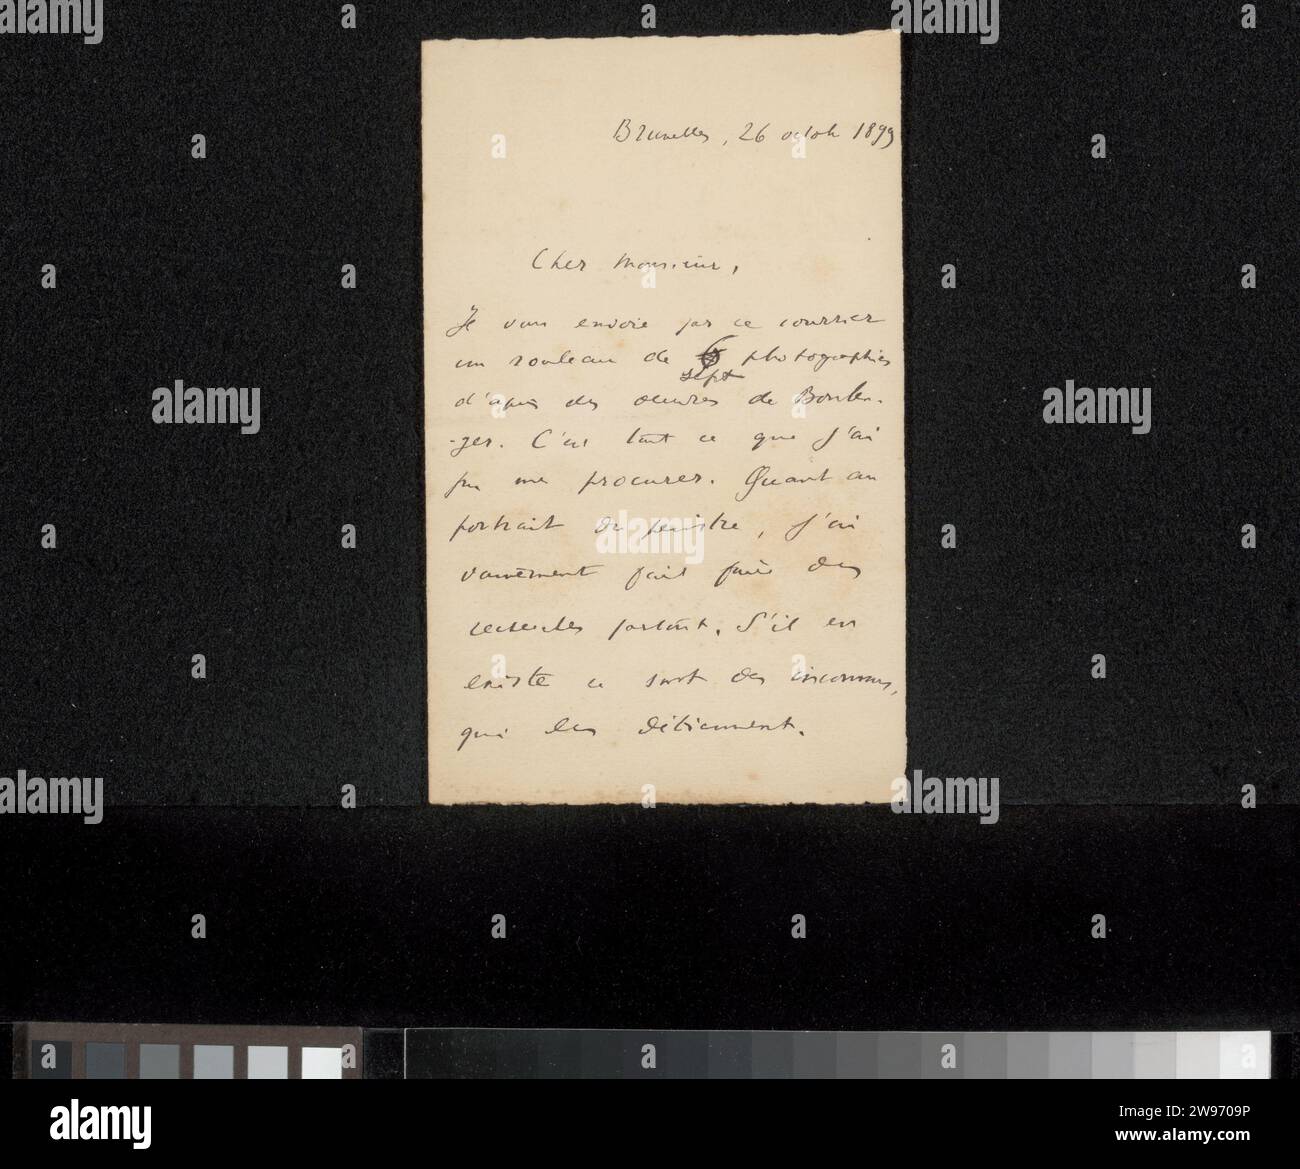 Bruxelles, 26 octob 1899
Cher Monsieur,
Je vous envoie par ce courrier
un rouleau de photographies
sept
d'après des œuvres de Boulen-
-ger. C'est tout ce que j'ai
pu me procurer. Quant au
portrait du peintre, j'ai
vainement fait faire des
recherches partout. S'il en
existe ce sont des inconnus,
qui les détiennent.
alamy
Image ID: 2W9709P
www.alamy.com